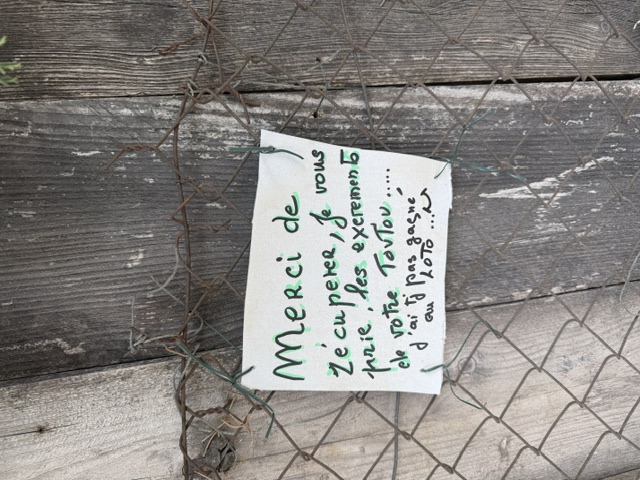 Merci de
récupérer, je vous
prie, les excrements
de votre Toutou.....
J'ai tj pas gagné,
au LOTO...